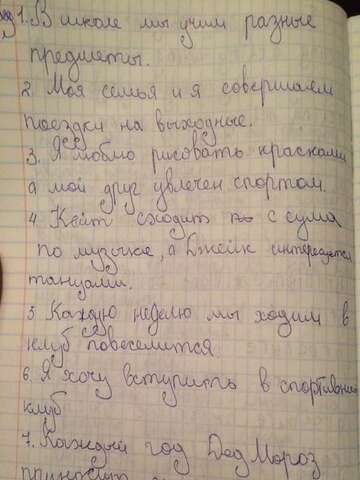 1. В школе мы учим разные
предметы.
2. Моя семья и я совершаем
поездки на выходные.
3. Я люблю рисовать красками
а мой друг увлечен спортом.
4. Кейт сходит с сума
по музыке, а Джейк интересуется
танцами.
5. Каждую неделю мы ходим в
клуб повеселится
6. Я хочу вступить в спортивный
клуб
7. Каждый год Дед Мороз
приносит